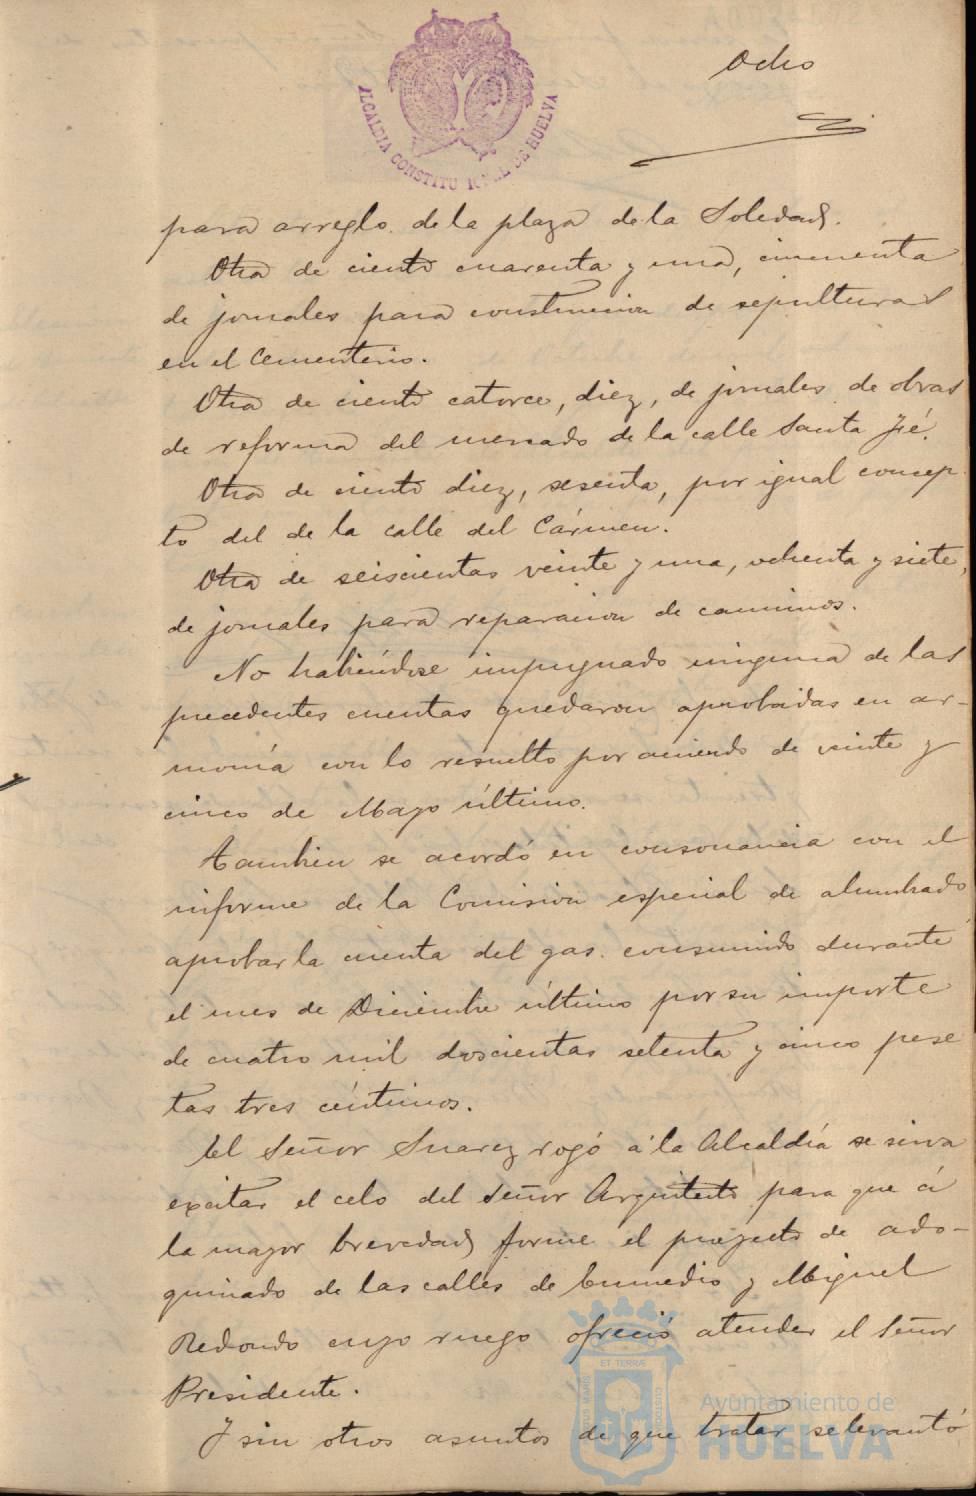 Ocho
ALCALDIA CONSTITUCIONAL DE HUELVA
para arreglo de la plaza de la Soledad.
Otra de ciento cuarenta y una, cincuenta
de jornales para construccion de sepulturas
en el Cementerio.
Otra de ciento catorce, diez, de jornales de obras
de reforma del mercado de la calle Santa Fé.
Otra de ciento diez, sesenta, por igual concep-
to del de la calle del Cármen.
Otra de seiscientas veinte y una, ochenta y siete,
de jornales para reparacion de caminos.
No habiéndose impugnado ninguna de las
precedentes cuentas quedaron aprobadas en ar-
monía con lo resuelto por acuerdo de veinte y
cinco de Mayo último.
Tambien se acordó en consonancia con el
informe de la Comision especial de alumbrado
aprobar la cuenta del gas consumido durante
el mes de Diciembre último por su importe
de cuatro mil doscientas setenta y cinco pese
tas tres céntimos.
El Señor Suarez rogó á la Alcaldía se sirva
excitar el celo del Señor Arquitecto para que á
la mayor brevedad forme el proyecto de ado-
quinado de las calles de Enmedio y Miguel
Redondo cuyo ruego ofreció atender el Señor
Presidente.
Y sin otros asuntos de que tratar se levantó
ET TERRÆ
PORTUS MARIS
CUSTODIA
Ayuntamiento de
HUELVA